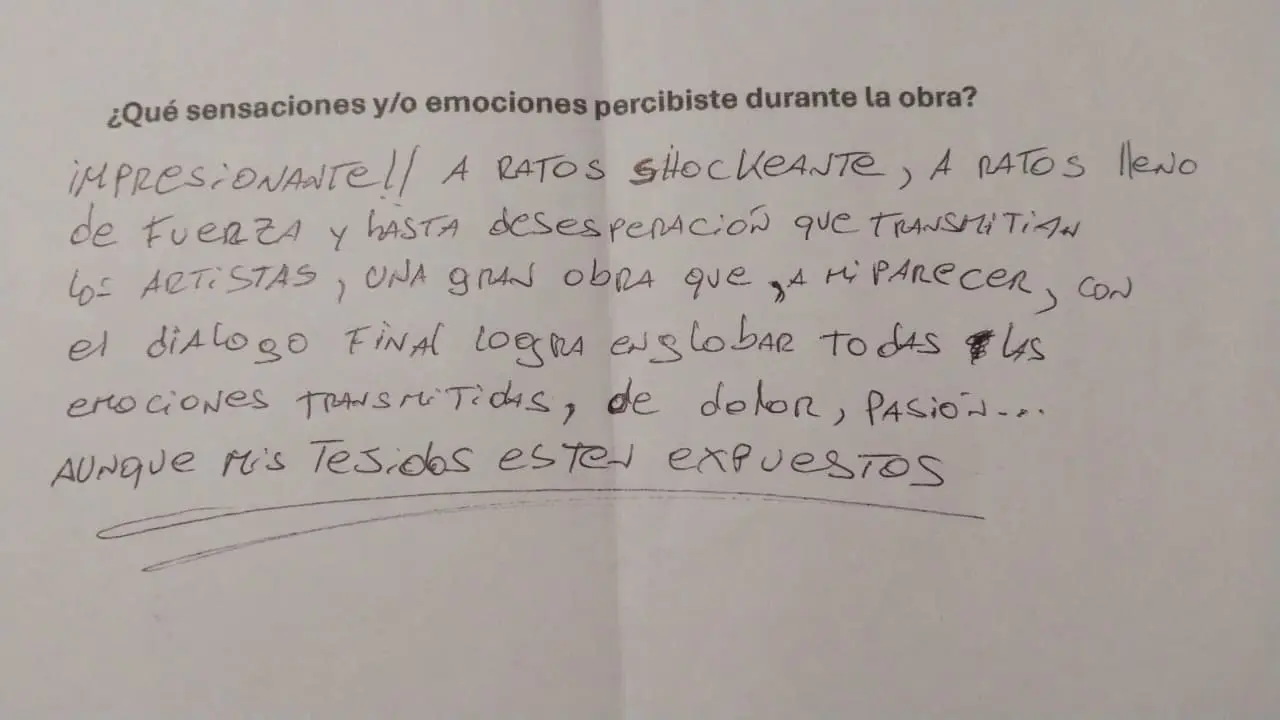 ¿Qué sensaciones y/o emociones percibiste durante la obra?
iMPResiONANTe!! A RATOS SHOCKeANTe, A RATOS lleNO
de FueRZA y hASTA desespeRACióN que TRANSMiTiAN
los ARTiSTAS, UNA gRAN obRA que, A Mi PARECER, CON
el diAlogo FiNAl logRA eNglobAR TodAS lAS
eMOCiONes TRANSMiTidAS, de doloR, PASióN...
AUNque Mis Tejidos esTeN expuesTOS